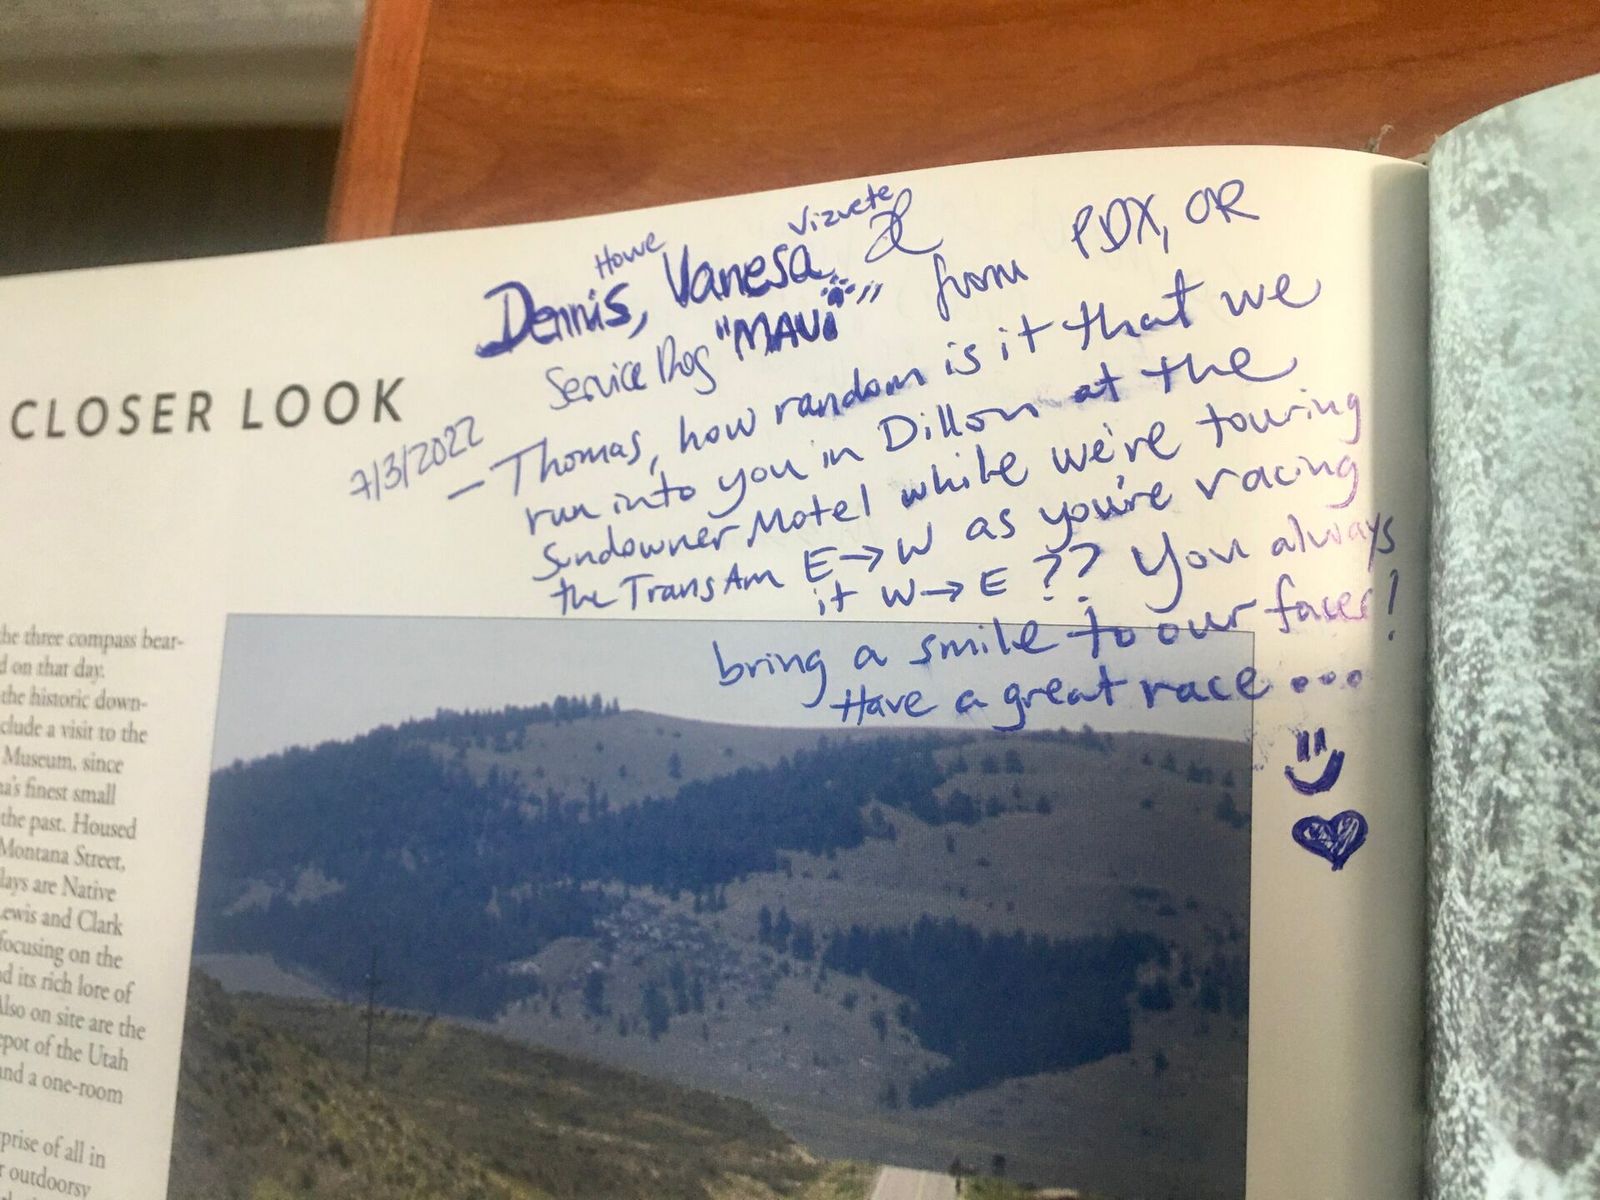 Howe Vizvete
Dennis, Vanesa, &
Service Dog "MAUi" from PDX, OR
CLOSER LOOK
7/3/2022
— Thomas, how random is it that we
run into you in Dillon at the
Sundowner Motel while we're touring
the TransAm E→W as you're racing
it W→E ?? You always
bring a smile to our faces!
Have a great race...
he three compass bear-
d on that day.
the historic down-
clude a visit to the
Museum, since
na's finest small
the past. Housed
Montana Street,
lays are Native
Lewis and Clark
focusing on the
d its rich lore of
Also on site are the
epot of the Utah
and a one-room
rprise of all in
r outdoorsy